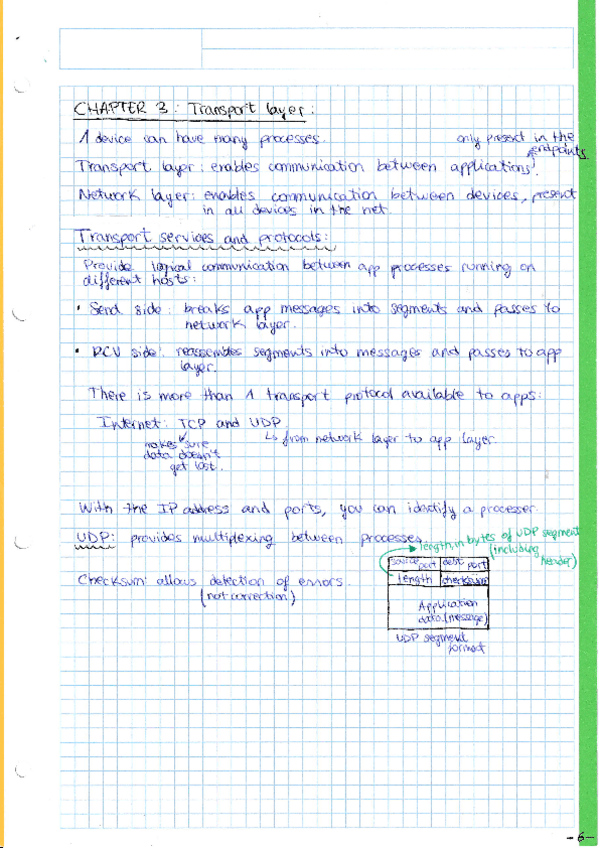 CHAPTER 3: Transport layer:
1 device can have many processes. only present in the
endpoints.
Transport layer: enables communication between applications.
Network layer: enables communication between devices, present
in all devices in the net.
Transport services and protocols:
Provide logical communication between app processes running on
different hosts:
• Send side: breaks app messages into segments and passes to
network layer.
• RCV side: reassembles segments into messages and passes to app
layer.
There is more than 1 transport protocol available to apps:
Internet: TCP and UDP
↳ from network layer to app layer.
makes sure
data doesn't
get lost.
With the IP address and ports, you can identify a processer.
UDP: provides multiplexing between processes.
length, in bytes of UDP segment
(including
header)
source port dest port
length checksum
Application
data (message)
UDP segment
format
Checksum: allows detection of errors.
(not correction)
-6-